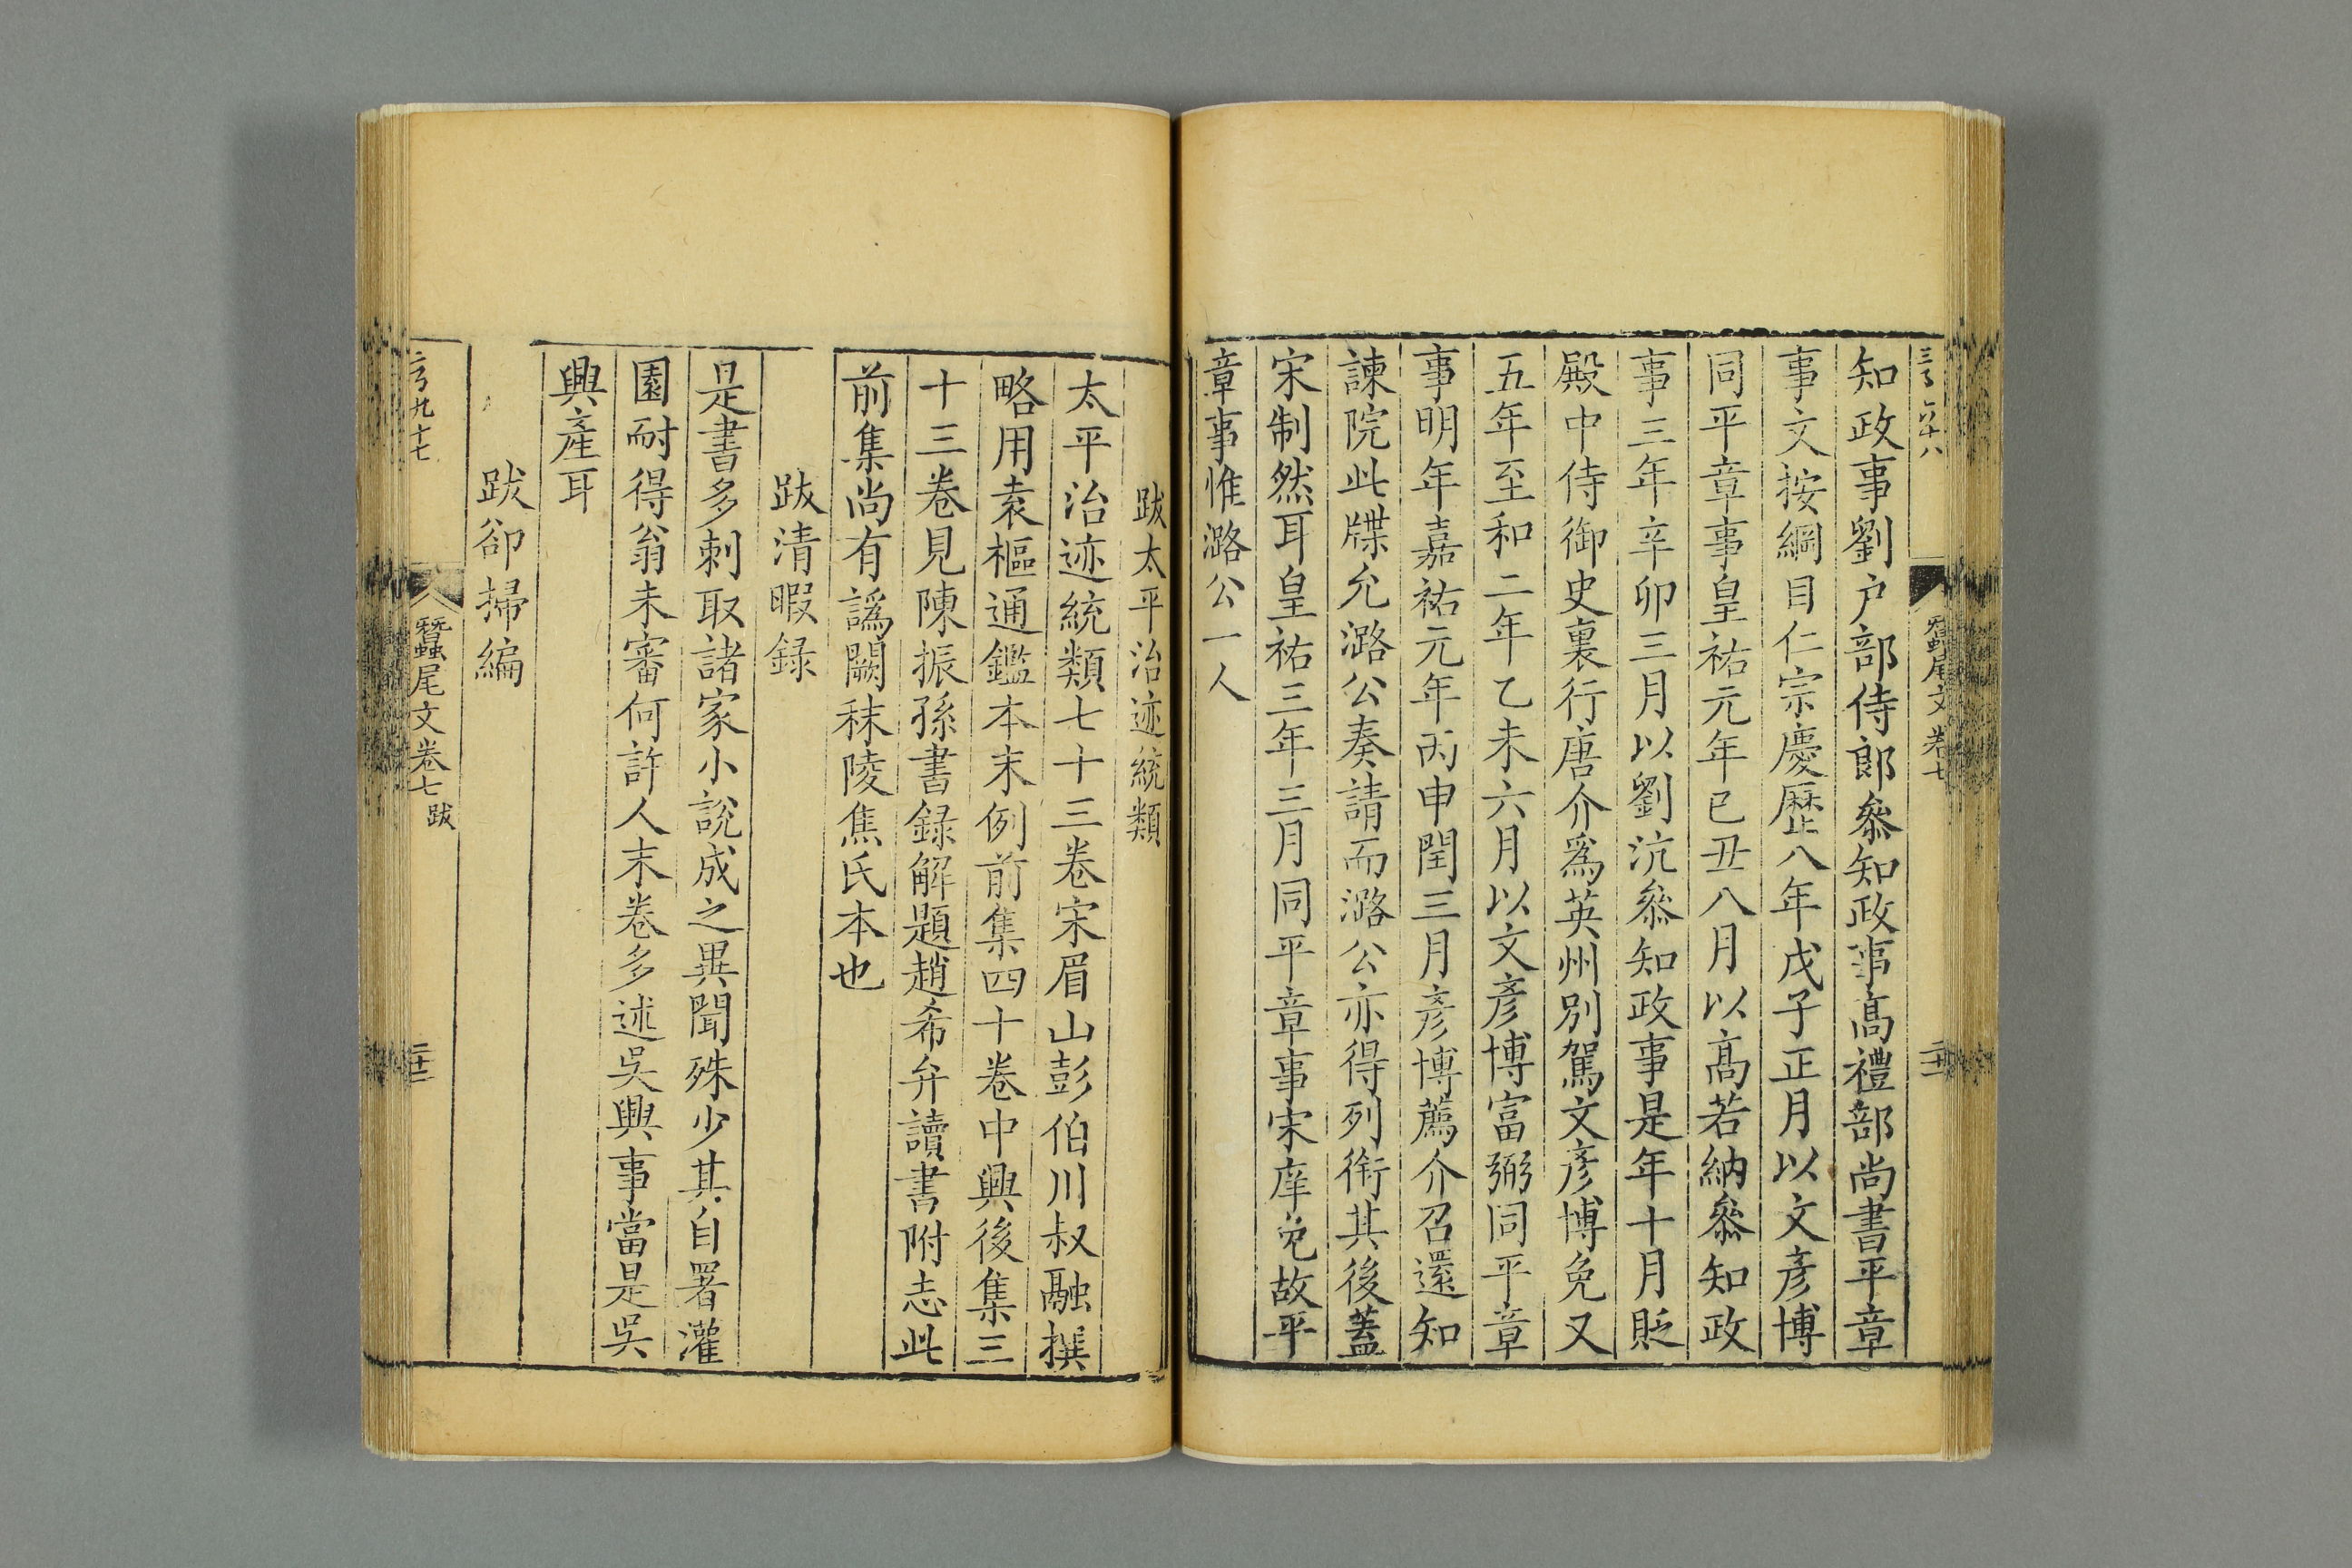 蠶尾文卷七
知政事劉户部侍郎叅知政事髙禮部尚書平章
事文按綱目仁宗慶歷八年戊子正月以文彥博
同平章事皇祐元年已丑八月以髙若納叅知政
事三年辛卯三月以劉沆叅知政事是年十月貶
殿中侍御史裏行唐介爲英州別駕文彥博免又
五年至和二年乙未六月以文彥博富弼同平章
事明年嘉祐元年丙申閏三月彥博薦介召還知
諫院此牒允潞公奏請而潞公亦得列銜其後蓋
宋制然耳皇祐三年三月同平章事宋庠免故平
章事惟潞公一人
跋太平治迹統類
太平治迹統類七十三卷宋眉山彭伯川叔融撰
略用袁樞通鑑本末例前集四十卷中興後集三
十三卷見陳振孫書録解題趙希弁讀書附志此
前集尚有譌闕秣陵焦氏本也
跋清暇録
是書多刺取諸家小說成之異聞殊少其自署灌
園耐得翁未審何許人末卷多述吳興事當是吳
興產耳
跋卻掃編
蠶尾文卷七 跋